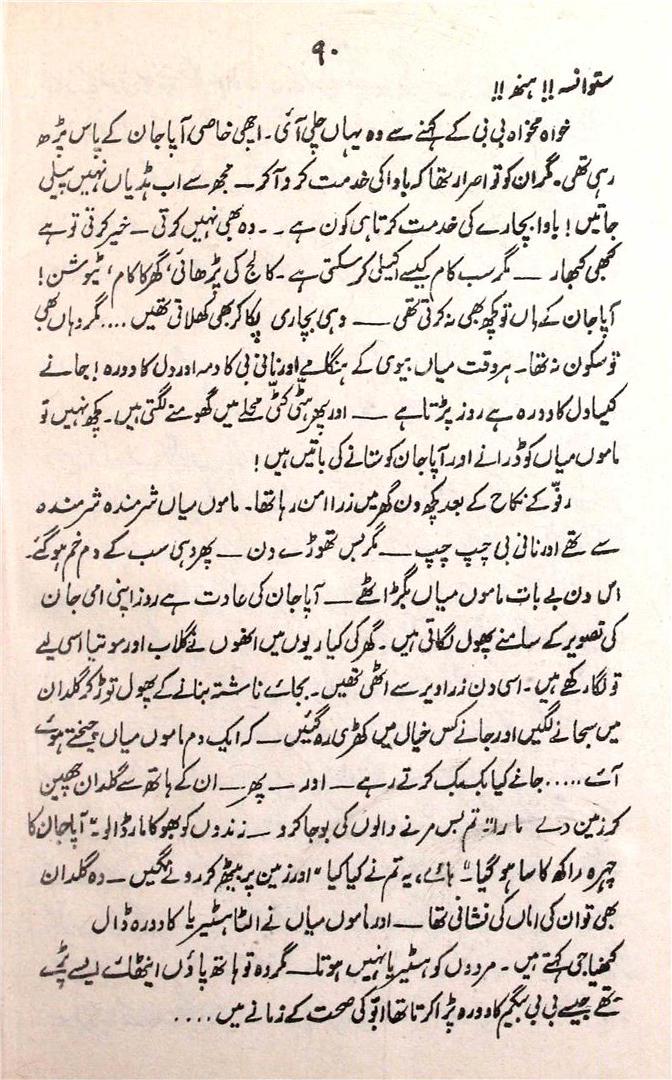 ۹۰
ستوانسہ !! ہنھ !!
خواہ مخواہ بی بی کے کہنے سے وہ یہاں چلی آئی۔ اچھی خاصی آپا جان کے پاس پڑھ
رہی تھی۔ مگر ان کو تو اصرار تھا کہ باوا کی خدمت کرو آ کر — مجھ سے اب ہڈیاں نہیں پیلی
جاتیں! باوا بچارے کی خدمت کرتا ہی کون ہے۔۔ وہ بھی نہیں کرتی — خیر کرتی تو ہے
کبھی کبھار — مگر سب کام کیسے اکیلی کر سکتی ہے۔ کالج کی پڑھائی، گھر کا کام، ٹیوشن!
آپا جان کے ہاں تو کچھ بھی نہ کرتی تھی — وہی بچاری پکا کر بھی کھلاتی تھیں .... مگر وہاں بھی
تو سکون نہ تھا۔ ہر وقت میاں بیوی کے ہنگامے اور نانی بی کا دمہ اور دل کا دورہ! جانے
کیسا دل کا دورہ ہے روز پڑتا ہے — اور پھر ہٹی کٹی محلے میں گھومنے لگتی ہیں۔ کچھ نہیں تو
ماموں میاں کو ڈرانے اور آپا جان کو ستانے کی باتیں ہیں!
رفو کے نکاح کے بعد کچھ دن گھر میں ذرا امن رہا تھا۔ ماموں میاں شرمندہ شرمندہ
سے تھے اور نانی بی چپ چپ — مگر بس تھوڑے دن — پھر وہی سب کے دم خم ہو گئے۔
اس دن بے بات ماموں میاں بگڑ اٹھے — آپا جان کی عادت ہے روز اپنی امی جان
کی تصویر کے سامنے پھول لگاتی ہیں۔ گھر کی کیاریوں میں انھوں نے گلاب اور موتیا اسی لیے
تو لگا رکھے ہیں۔ اسی دن ذرا دیر سے اٹھی تھیں۔ بجائے ناشتہ بنانے کے پھول توڑ کر گلدان
میں سجانے لگیں اور جانے کس خیال میں کھڑی رہ گئیں — کہ ایک دم ماموں میاں چیختے ہوئے
آئے ..... جانے کیا بک بک کرتے رہے — اور — پھر — ان کے ہاتھ سے گلدان چھین
کر زمین دے مارا: تم بس مرنے والوں کی پوجا کرو — زندوں کو بھوکا مار ڈالو" آپا جان کا
چہرہ راکھ کا سا ہو گیا۔ "ہائے، یہ تم نے کیا کیا" اور زمین پر بیٹھ کر رونے لگیں — وہ گلدان
بھی تو ان کی اماں کی نشانی تھا — اور ماموں میاں نے الٹا ہسٹیریا کا دورہ ڈال
جی کہتے ہیں۔ مردوں کو ہسٹیریا نہیں ہوتا — مگر وہ تو ہاتھ پاؤں اینٹھائے ایسے پڑے
تھے جیسے بی بی بیگم کا دورہ پڑا کرتا تھا ابو کی صحت کے زمانے میں ....